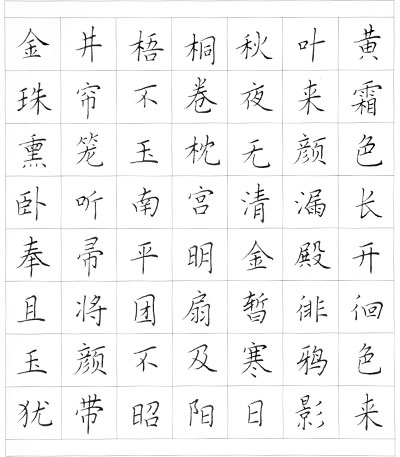 金井梧桐秋叶黄
珠帘不卷夜来霜
熏笼玉枕无颜色
卧听南宫清漏长
奉帚平明金殿开
且将团扇暂徘徊
玉颜不及寒鸦色
犹带昭阳日影来